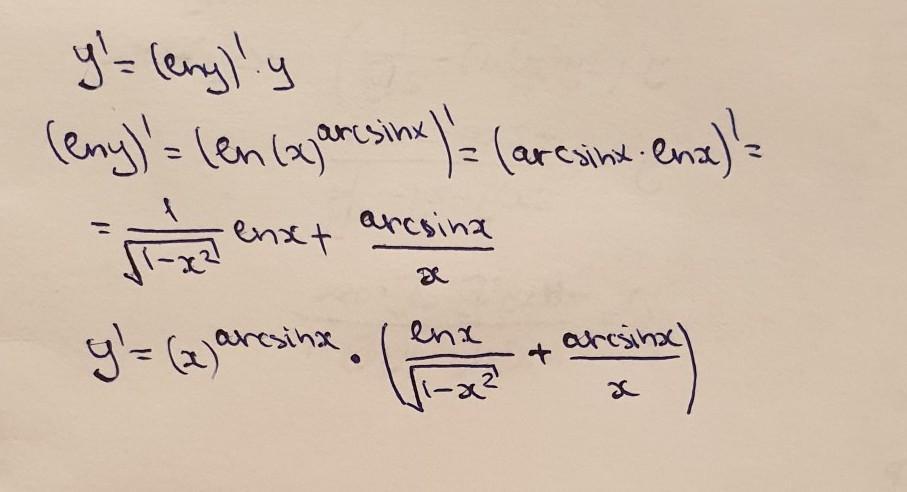 y' = (ln y)' · y
(ln y)' = (ln (x)^arcsinx)' = (arcsinx · lnx)' =
= 1/√(1-x²) lnx + arcsinx/x
y' = (x)^arcsinx · (lnx/√(1-x²) + arcsinx/x)